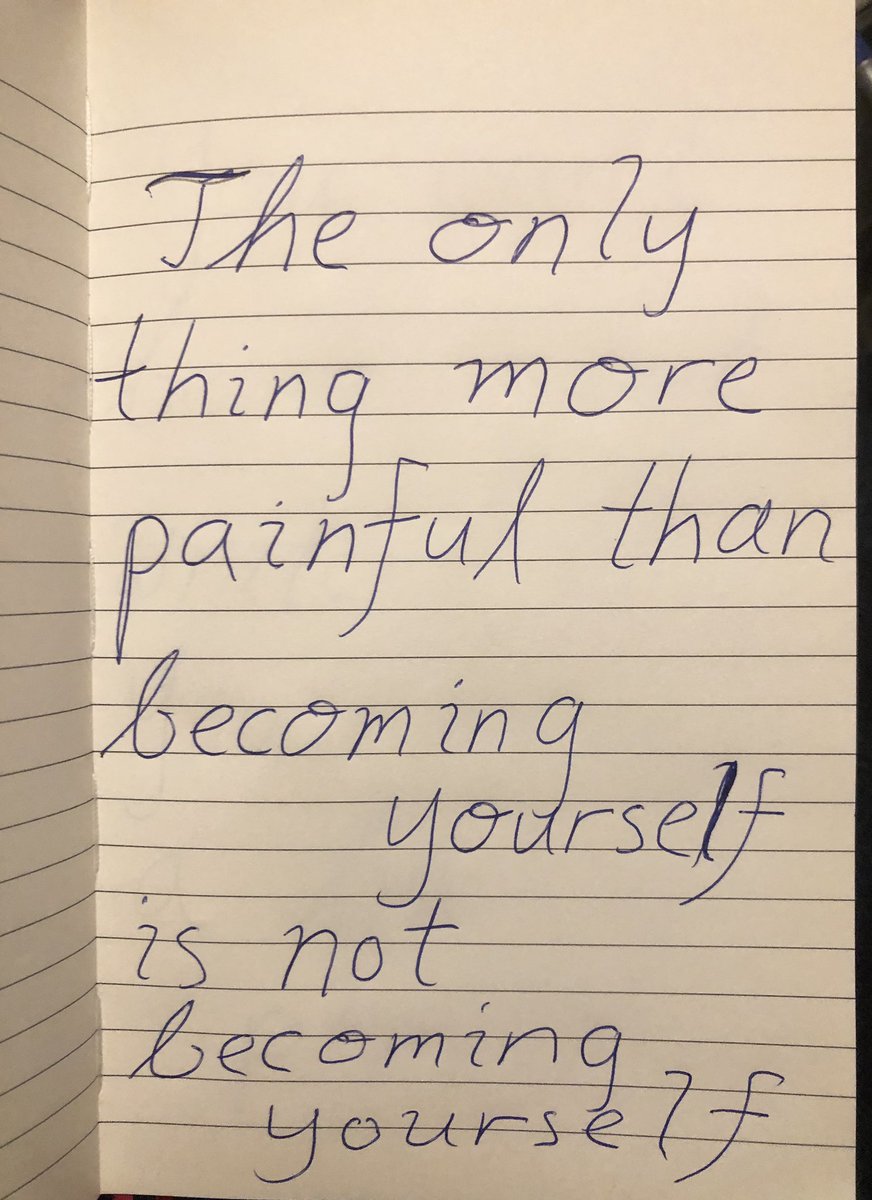 The only
thing more
painful than
becoming
yourself
is not
becoming
yourself